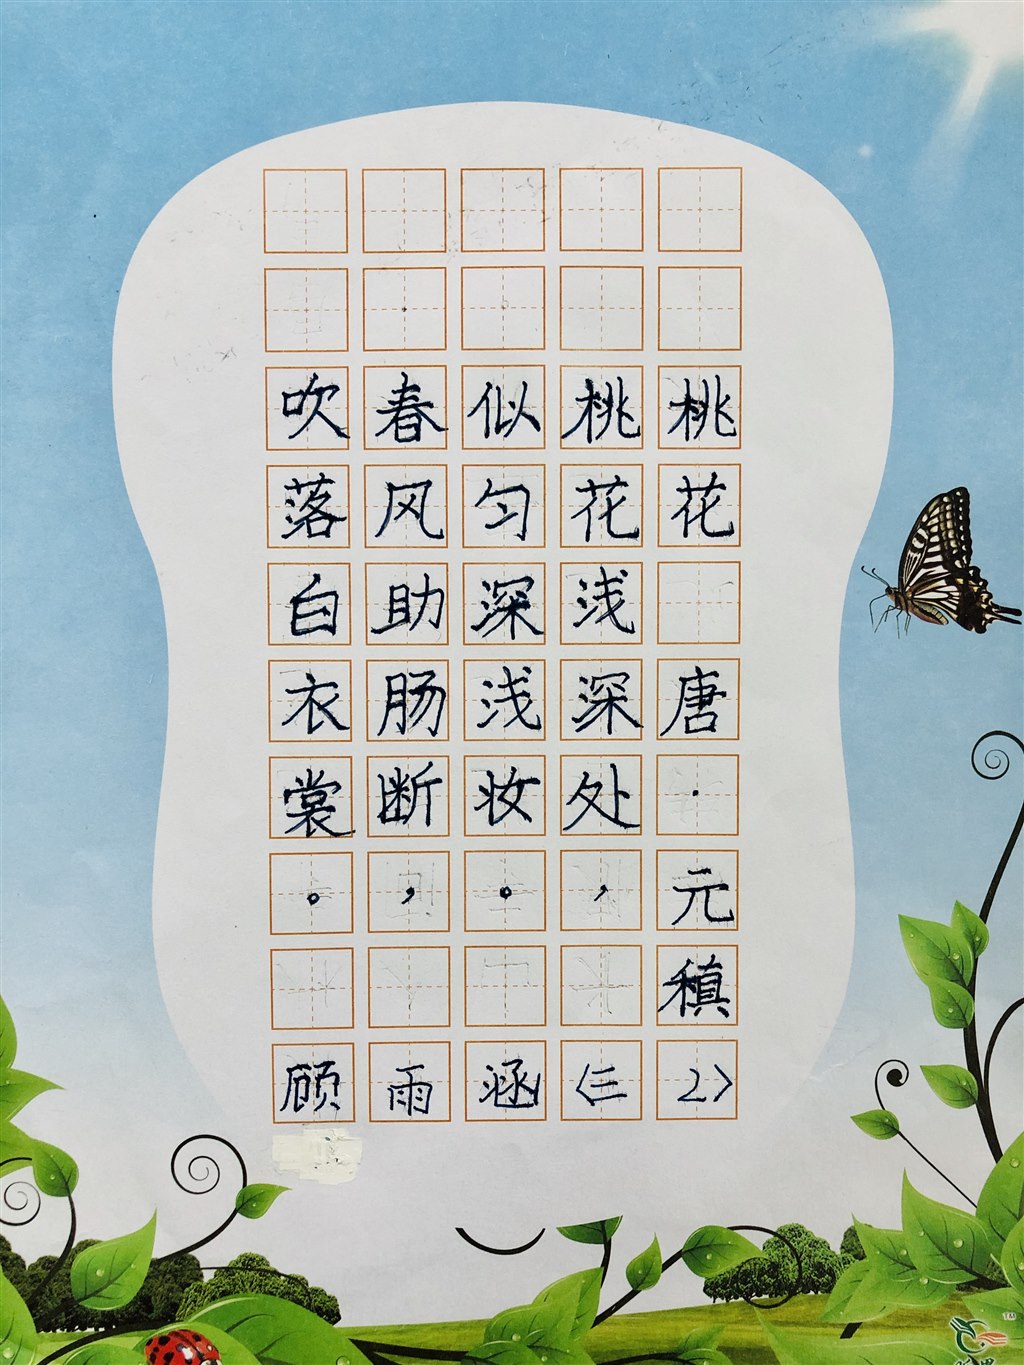 桃花 唐·元稹
桃花浅深处，
似匀深浅妆。
春风助肠断，
吹落白衣裳。
顾雨涵〈三2〉